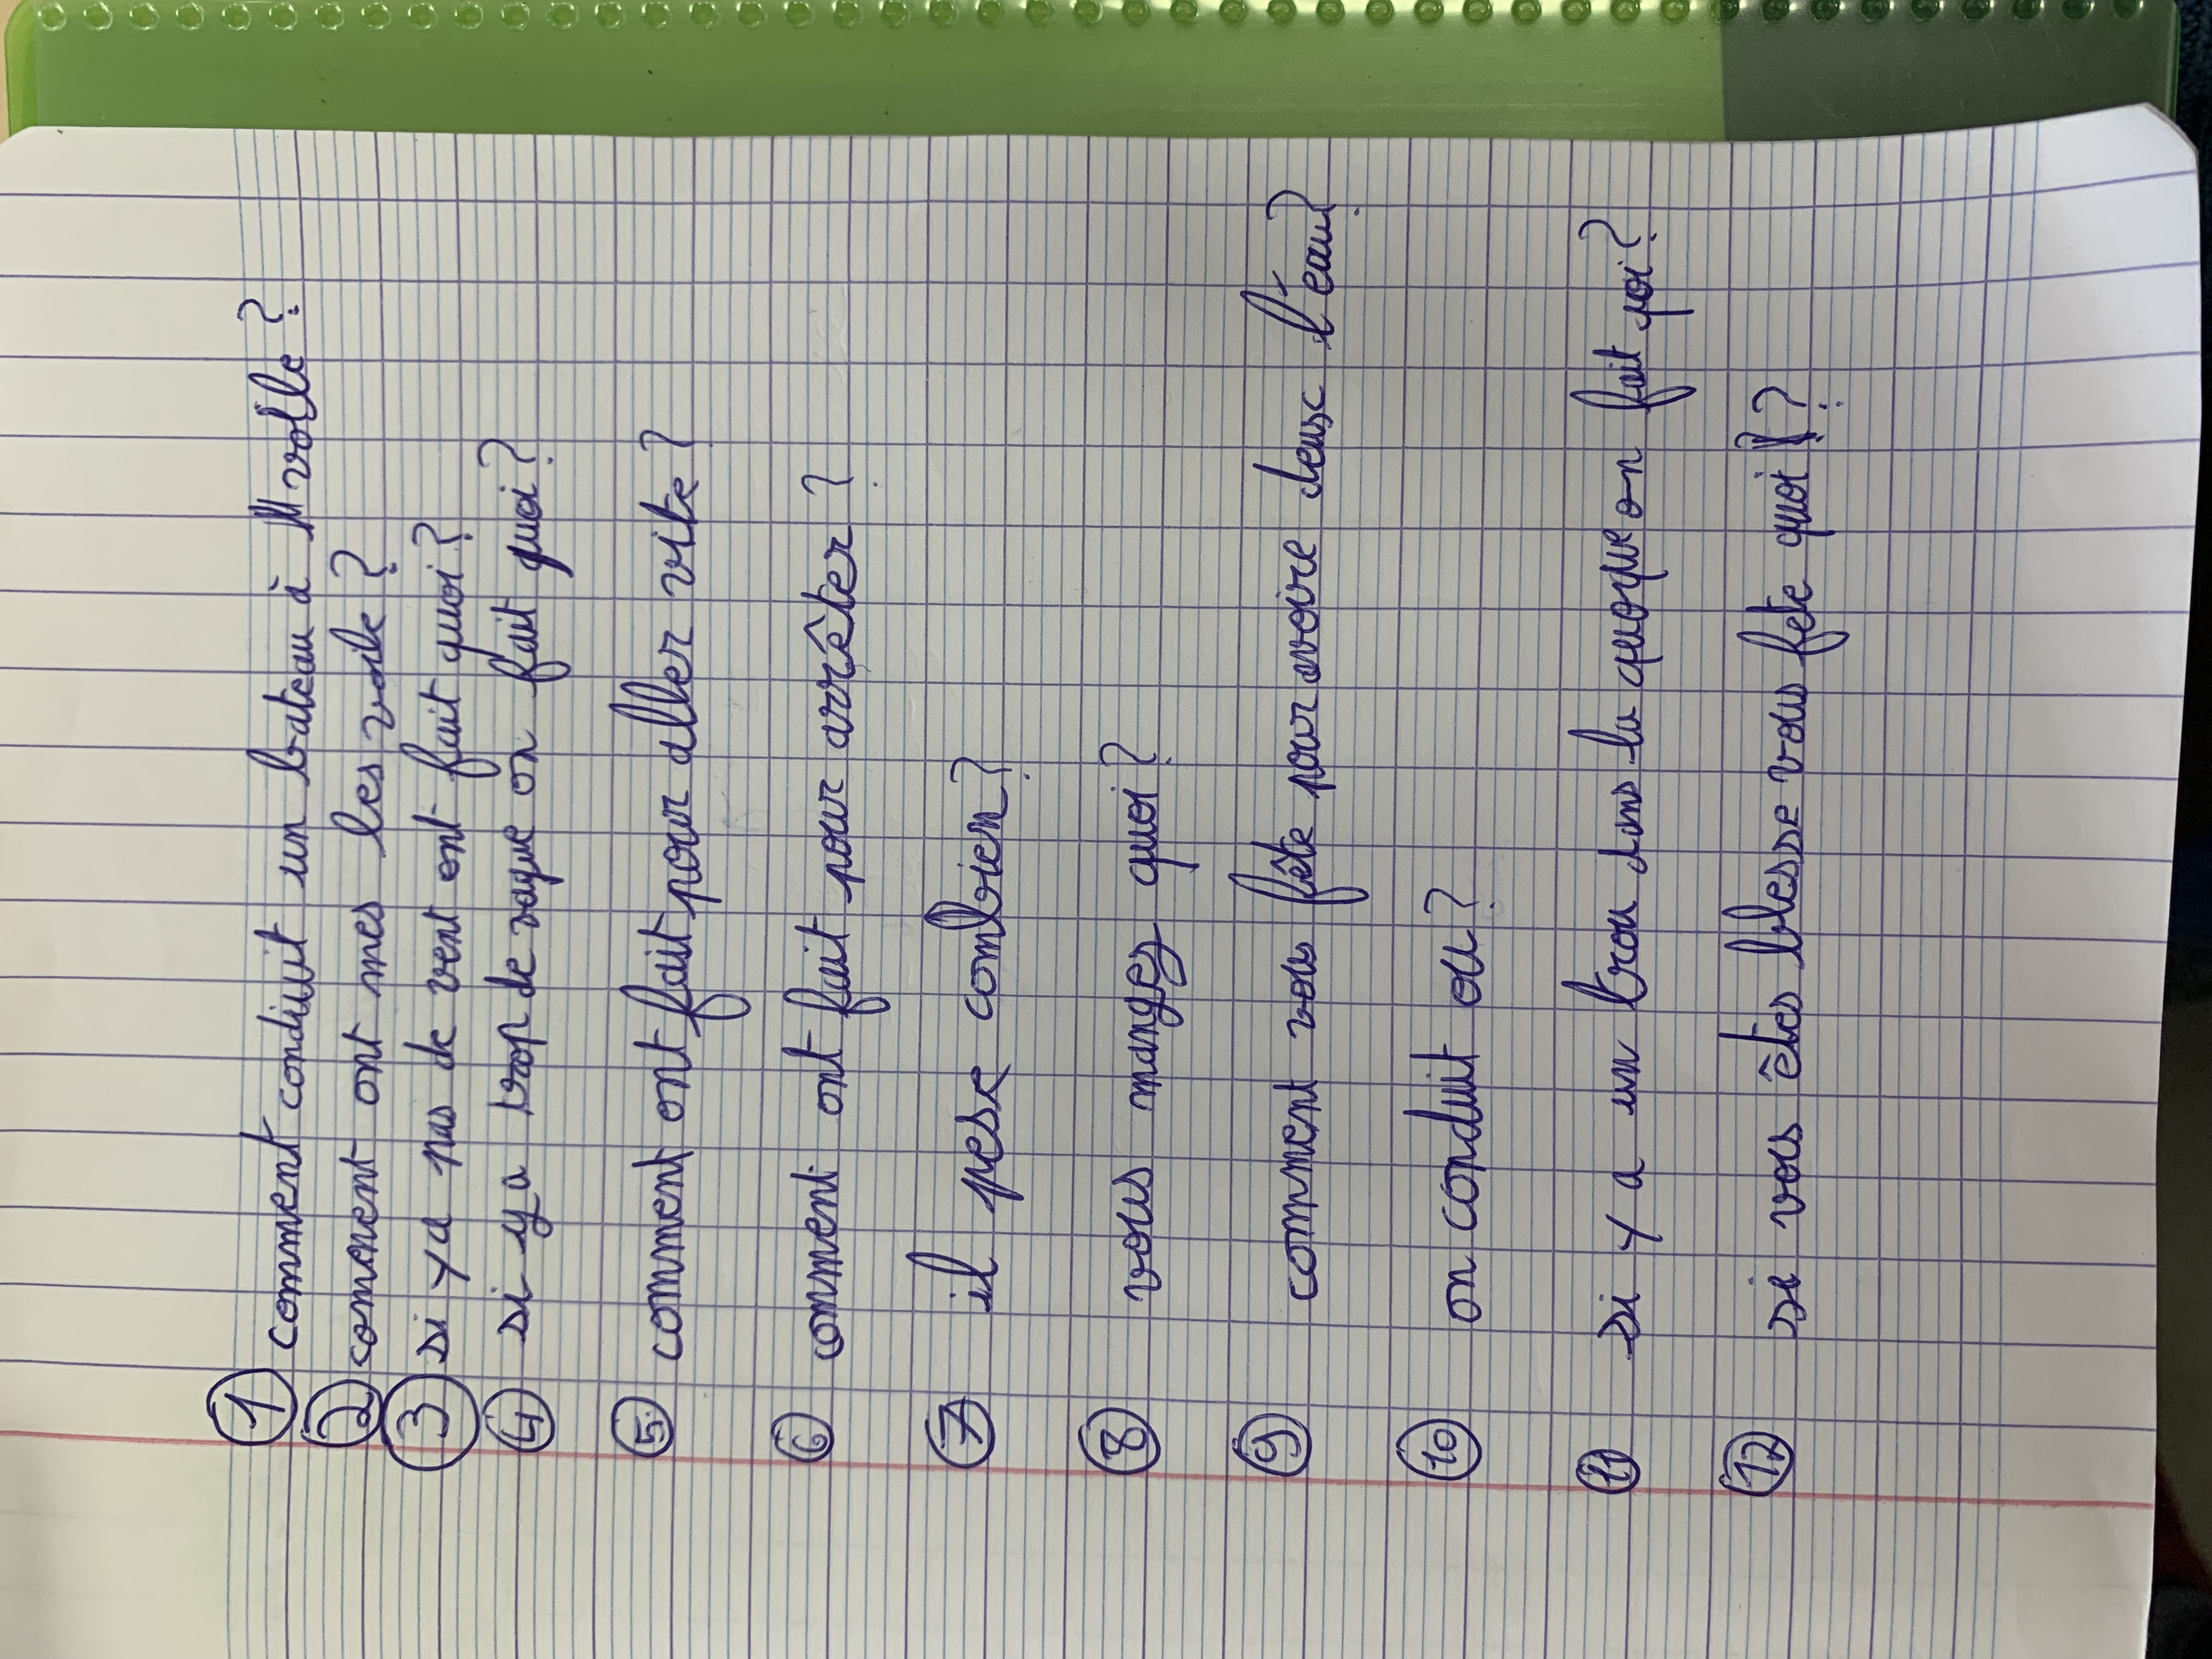 ① comment conduit un bateau à voille ?
② comment ont mes les voile ?
③ si y a pas de vent ont fait quoi ?
④ si y a trop de vague on fait quoi ?
⑤ comment ont fait pour aller vite ?
⑥ comment ont fait pour arrêter ?
⑦ il pese combien ?
⑧ vous mangez quoi ?
⑨ comment vous fête pour avoire deux l'eau ?
⑩ on conduit ou ?
⑪ si y a un trou dans la quoque on fait qoi ?
⑫ si vous êtes blesse vous fete quoi ?